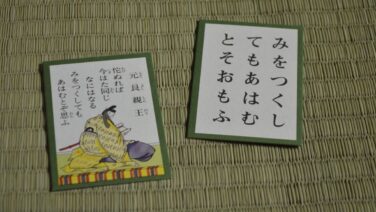 元良親王
侘ぬれば
今はた同じ
なにはなる
みをつくしても
あはむとぞ思ふ
みをつくし
てもあはむ
とそおもふ